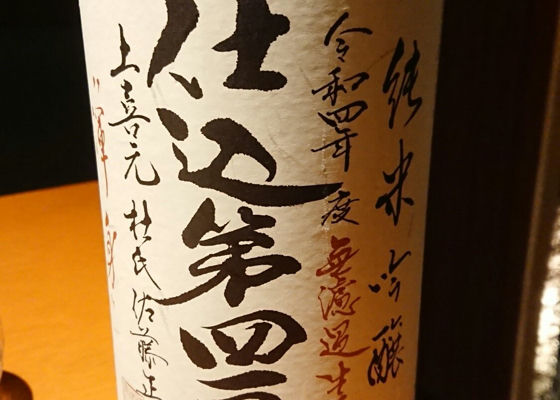 純米吟醸
令和四年度 無濾過生
仕込第四
上喜元 杜氏佐藤正